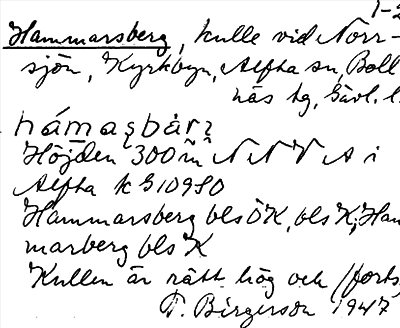 1-2
Hammarsberg, kulle vid Norr-
sjön, Kyrkbyn, Alfta sn, Boll
näs tg, Gävl. l.
Höjden 300 m N N V A i
Alfta k G 10980
Hammarsberg bls ÖK, bls K, Ham
marberg bls K
Kullen är rätt hög och (forts.
T. Birgerson 1947